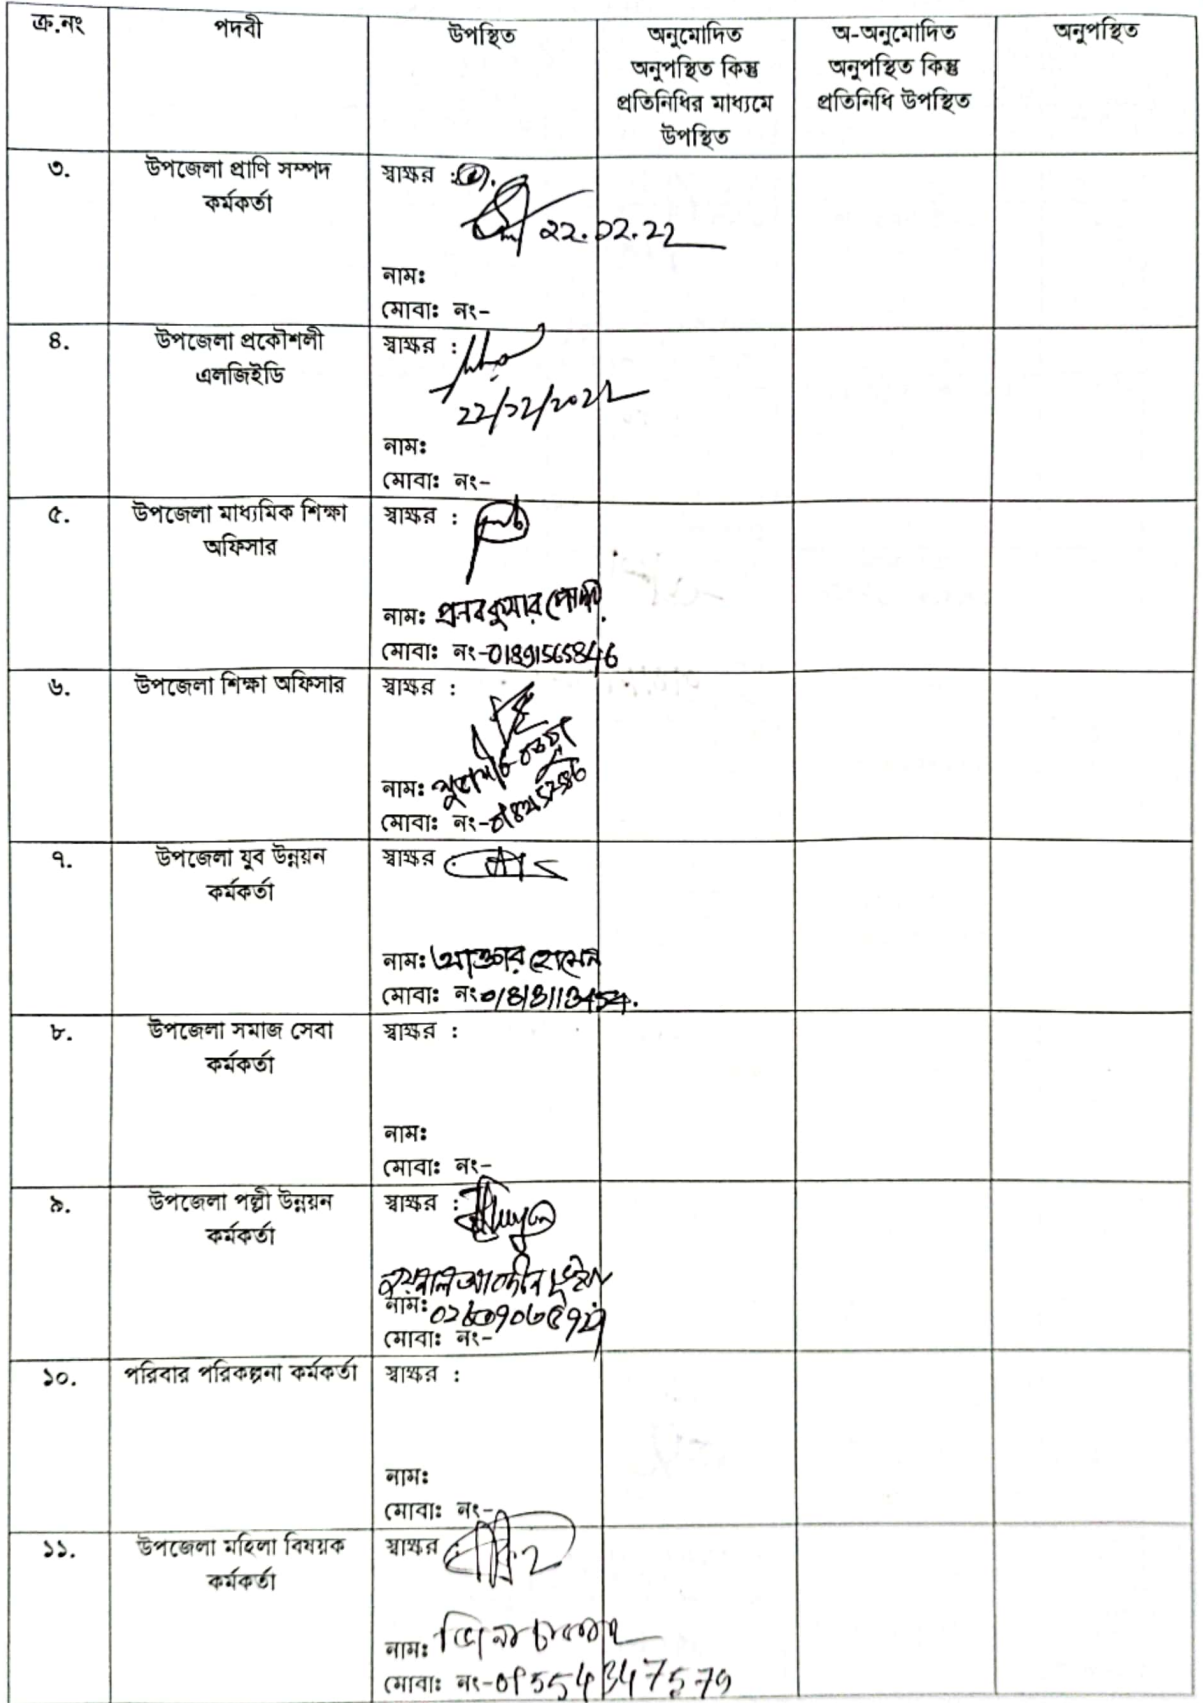 ক্র.নং পদবী উপস্থিত অনুমোদিত অনুপস্থিত কিন্তু প্রতিনিধির মাধ্যমে উপস্থিত অ-অনুমোদিত অনুপস্থিত কিন্তু প্রতিনিধি উপস্থিত অনুপস্থিত
৩. উপজেলা প্রাণি সম্পদ কর্মকর্তা
স্বাক্ষর :
22.02.22
নাম:
মোবা: নং-
৪. উপজেলা প্রকৌশলী এলজিইডি
স্বাক্ষর :
22/02/2022
নাম:
মোবা: নং-
৫. উপজেলা মাধ্যমিক শিক্ষা অফিসার
স্বাক্ষর :
নাম: প্রনব কুমার
মোবা: নং-01891565846
৬. উপজেলা শিক্ষা অফিসার
স্বাক্ষর :
নাম:
মোবা: নং-
৭. উপজেলা যুব উন্নয়ন কর্মকর্তা
স্বাক্ষর :
নাম: আক্তার হোসেন
মোবা: নং
৮. উপজেলা সমাজ সেবা কর্মকর্তা
স্বাক্ষর :
নাম:
মোবা: নং-
৯. উপজেলা পল্লী উন্নয়ন কর্মকর্তা
স্বাক্ষর :
নাম:
মোবা: নং-
১০. পরিবার পরিকল্পনা কর্মকর্তা
স্বাক্ষর :
নাম:
মোবা: নং-
১১. উপজেলা মহিলা বিষয়ক কর্মকর্তা
স্বাক্ষর :
নাম:
মোবা: নং-